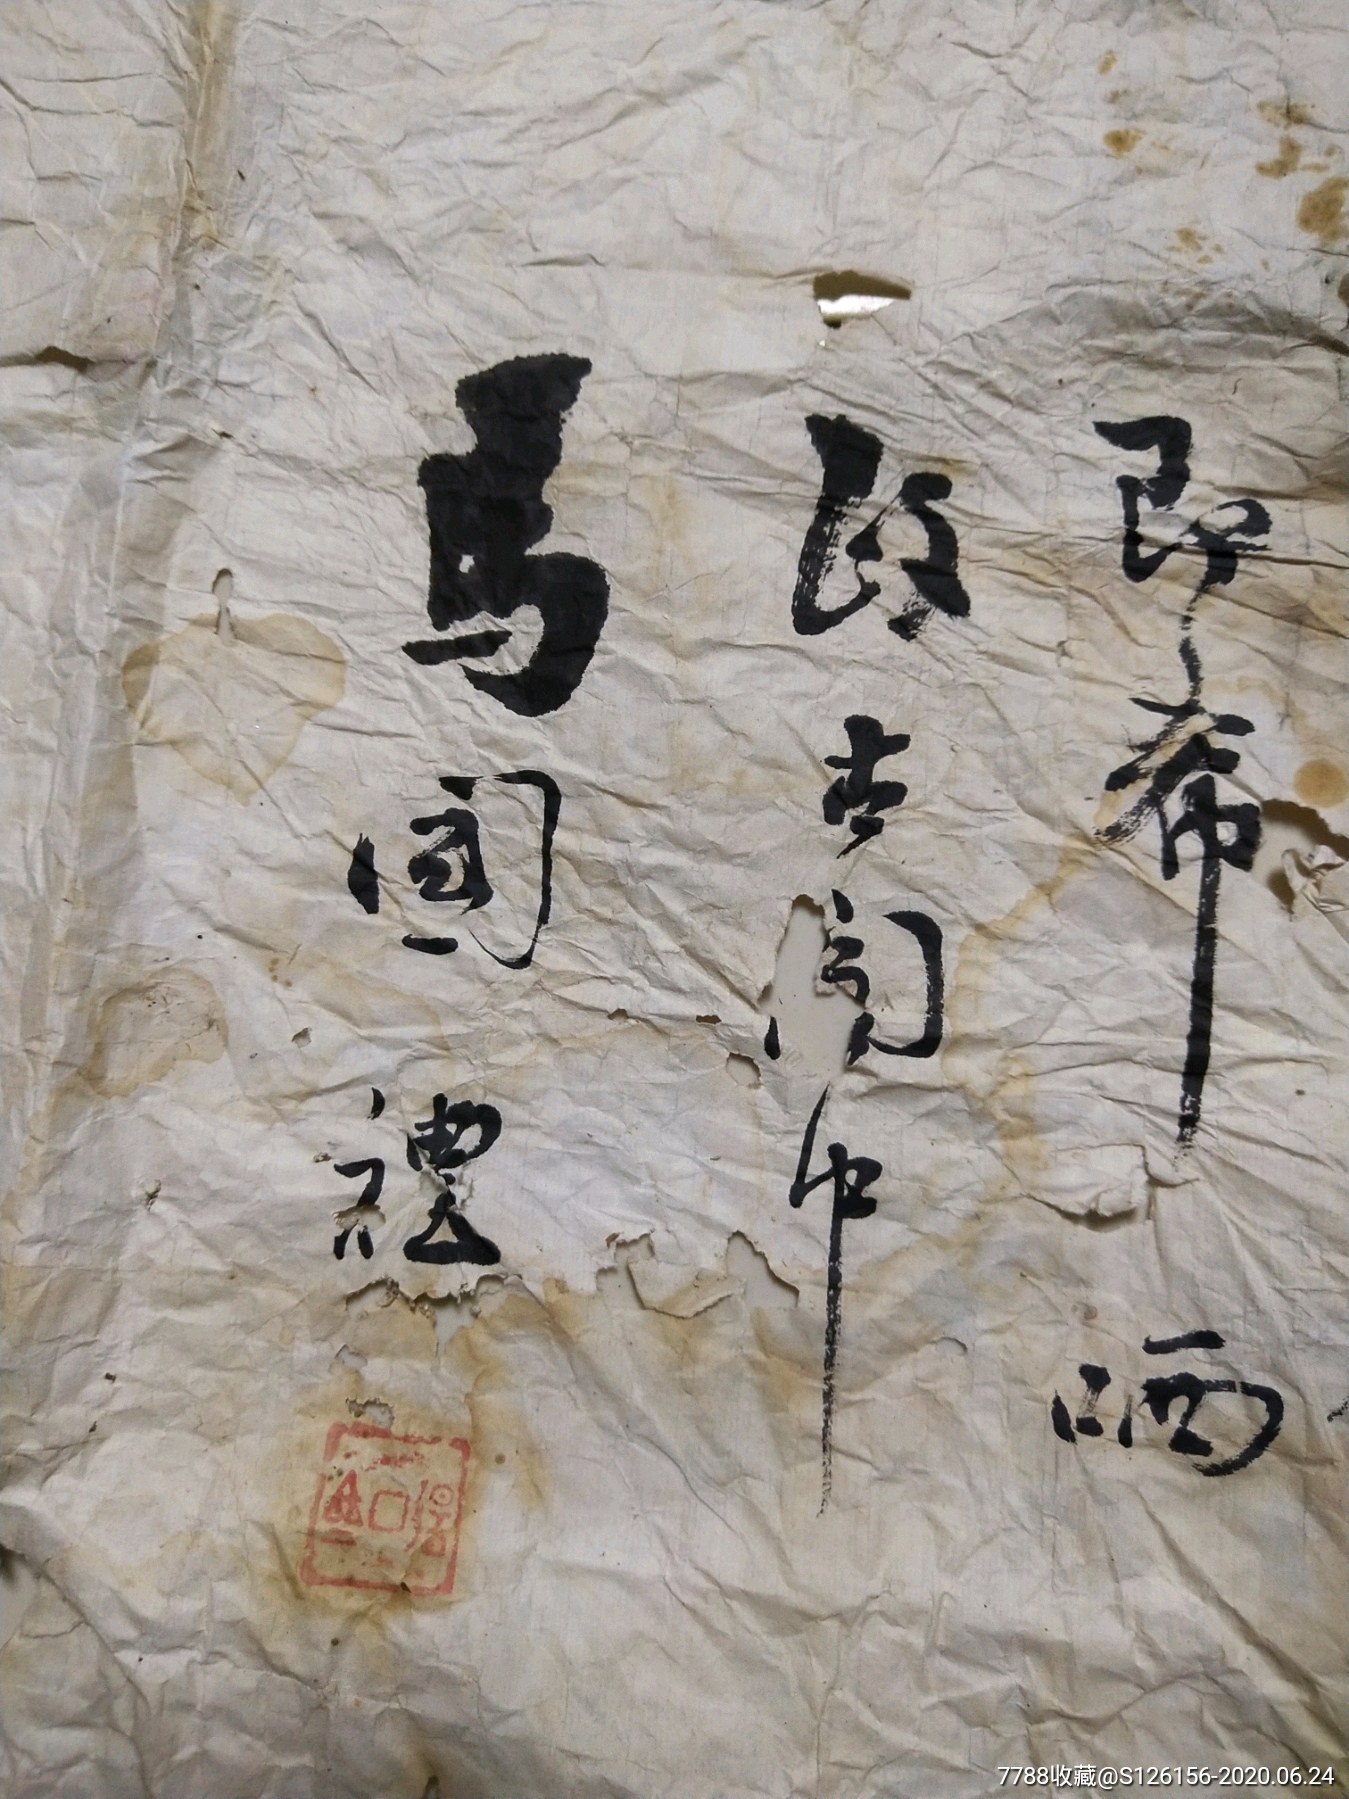 即希晒
政 吉閣中
馬國禮
7788收藏@S126156-2020.06.24